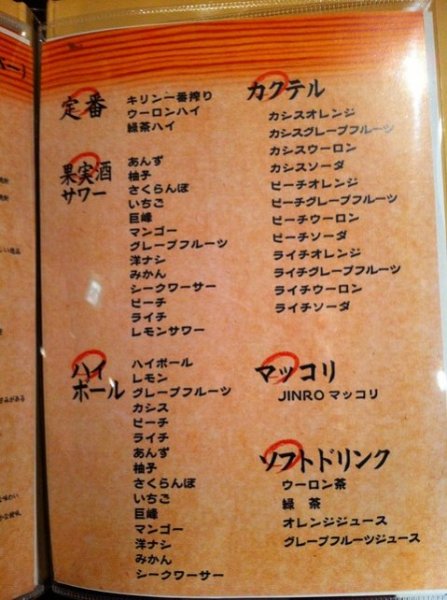 定番
キリン一番搾り
ウーロンハイ
緑茶ハイ
果実酒
サワー
あんず
柚子
さくらんぼ
いちご
巨峰
マンゴー
グレープフルーツ
洋ナシ
みかん
シークワーサー
ピーチ
ライチ
レモンサワー
ハイ
ボール
ハイボール
レモン
グレープフルーツ
カシス
ピーチ
ライチ
あんず
柚子
さくらんぼ
いちご
巨峰
マンゴー
洋ナシ
みかん
シークワーサー
カクテル
カシスオレンジ
カシスグレープフルーツ
カシスウーロン
カシスソーダ
ピーチオレンジ
ピーチグレープフルーツ
ピーチウーロン
ピーチソーダ
ライチオレンジ
ライチグレープフルーツ
ライチウーロン
ライチソーダ
マッコリ
JINRO マッコリ
ソフトドリンク
ウーロン茶
緑 茶
オレンジジュース
グレープフルーツジュース